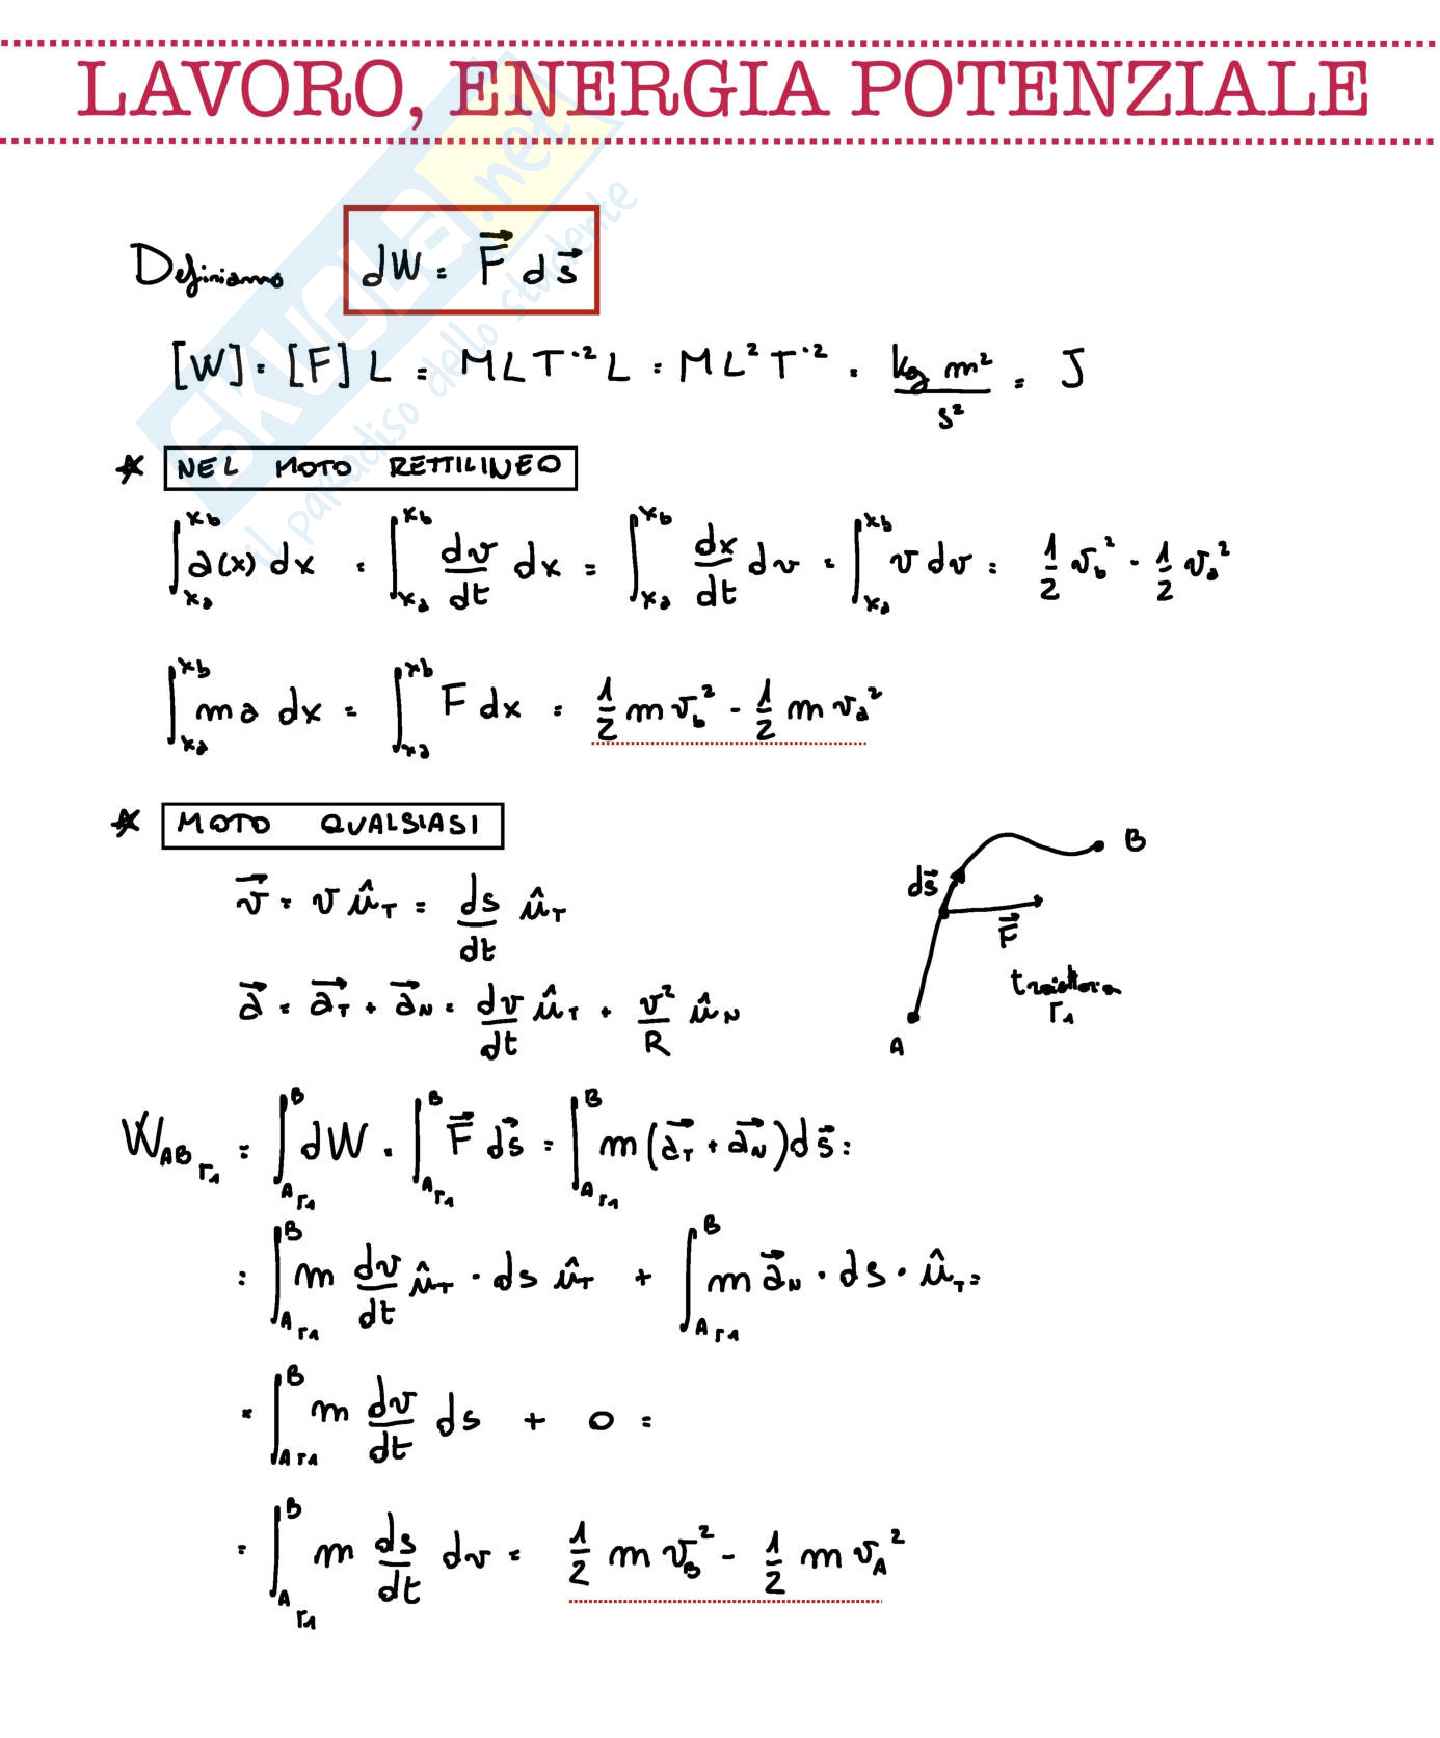 LAVORO, ENERGIA POTENZIALE
SKUOLA.net
il paradiso dello studente
Definiamo dW = F⃗ ds⃗
[W] = [F] L = MLT⁻² L = ML² T⁻² = kg m²/s² = J
* NEL MOTO RETTILINEO
∫_{xa}^{xb} a(x) dx = ∫_{xa}^{xb} dv/dt dx = ∫_{xa}^{xb} dx/dt dv = ∫_{xa}^{xb} v dv = 1/2 v_b² - 1/2 v_a²
∫_{xa}^{xb} ma dx = ∫_{xa}^{xb} F dx = 1/2 m v_b² - 1/2 m v_a²
* MOTO QUALSIASI
v⃗ = v û_T = ds/dt û_T
a⃗ = a⃗_T + a⃗_N = dv/dt û_T + v²/R û_N
B
ds⃗
F⃗
traiettoria
Γ1
A
W_{AB Γ1} = ∫_{A Γ1}^{B} dW = ∫_{A Γ1}^{B} F⃗ ds⃗ = ∫_{A Γ1}^{B} m(a⃗_T + a⃗_N) ds⃗ =
= ∫_{A Γ1}^{B} m dv/dt û_T · ds û_T + ∫_{A Γ1}^{B} m a⃗_N · ds · û_T =
= ∫_{A Γ1}^{B} m dv/dt ds + 0 =
= ∫_{A Γ1}^{B} m ds/dt dv = 1/2 m v_B² - 1/2 m v_A²